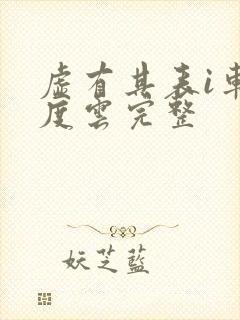 虛有其表i車
度雲完整
妖芝藍